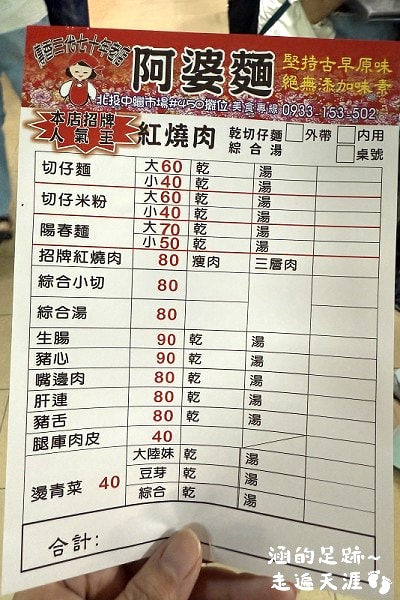 傳香三代七十年老店
阿婆麵
堅持古早原味
絕無添加味素
北投中繼市場#450攤位 美食專線 0933-153-502
本店招牌
人氣王
紅燒肉
乾切仔麵 外帶 內用
綜合湯 桌號
切仔麵 大60 乾 湯
小40 乾 湯
切仔米粉 大60 乾 湯
小40 乾 湯
陽春麵 大70 乾 湯
小50 乾 湯
招牌紅燒肉 80 瘦肉 三層肉
綜合小切 80
綜合湯 80
生腸 90 乾 湯
豬心 90 乾 湯
嘴邊肉 80 乾 湯
肝連 80 乾 湯
豬舌 80 乾 湯
腿庫肉皮 40
燙青菜 40 大陸妹 乾 湯
豆芽 乾 湯
綜合 乾 湯
合計:
涵的足跡~
走遍天涯